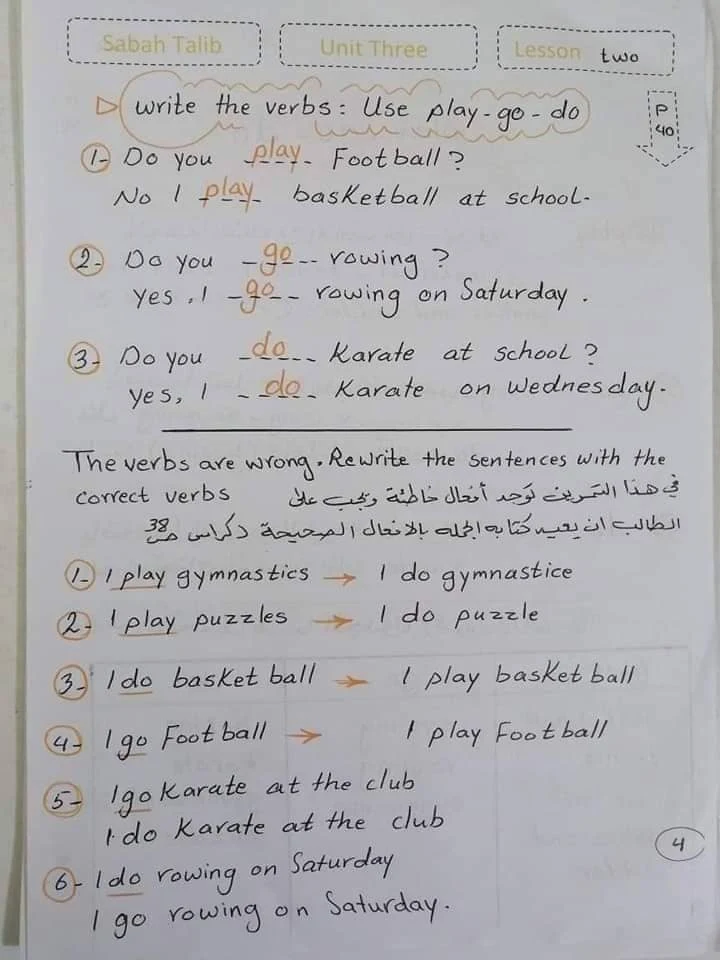 Sabah Talib Unit Three Lesson two
write the verbs: Use play-go-do
P 40
1- Do you play Football?
No I play basketball at school.
2- Do you go rowing?
Yes, I go rowing on Saturday.
3- Do you do Karate at school?
Yes, I do Karate on Wednesday.
The verbs are wrong. Rewrite the sentences with the
correct verbs في هذا التمرين توجد أفعال خاطئة ويجب على
الطالب ان يعيد كتابة الجمله بالافعال الصحيحة كراس ص 38
1- I play gymnastics → I do gymnastice
2- I play puzzles → I do puzzle
3- I do basket ball → I play basket ball
4- I go Football → I play Football
5- I go Karate at the club
I do Karate at the club
4
6- I do rowing on Saturday
I go rowing on Saturday.